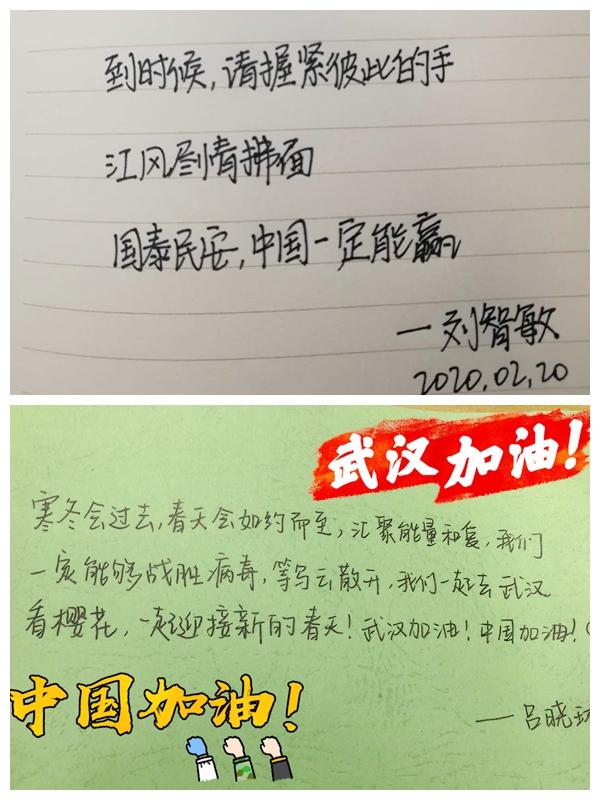 到时候,请握紧彼此的手
江风尽情拂面
国泰民安,中国一定能赢
一刘智敏
2020.02.20
武汉加油!
寒冬会过去,春天会如约而至,汇聚能量和爱,我们
一定能够战胜病毒,等乌云散开,我们一起去武汉
看樱花,一起迎接新的春天!武汉加油!中国加油!
中国加油!
——吕晓